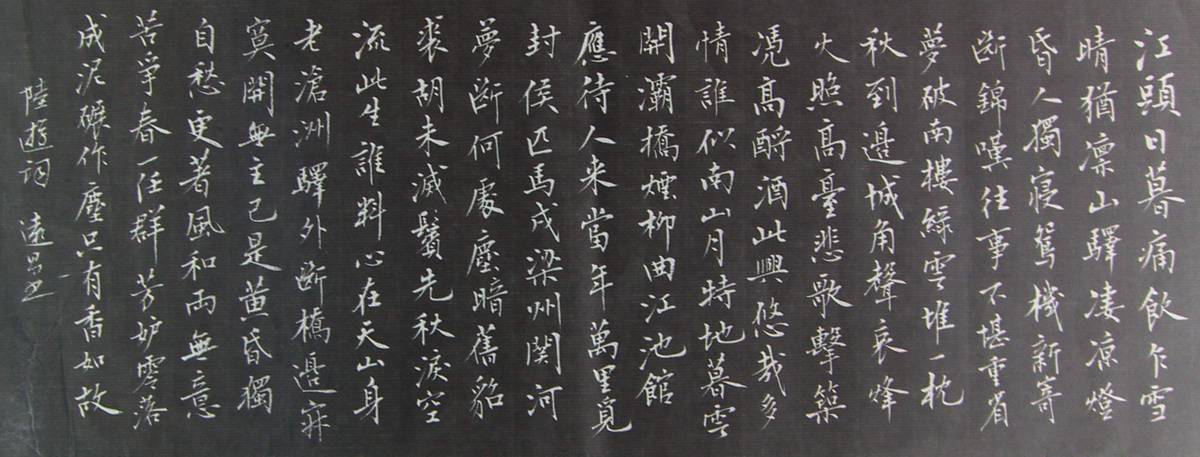 江頭日暮痛飲乍雪
晴猶凛山驛凄凉燈
昏人獨寝鴛機新寄
断錦嘆往事不堪重省
夢破南樓緑雲堆一枕
秋到邊城角聲哀烽
火照高臺悲歌擊築
憑高酹酒此興悠哉多
情誰似南山月特地暮雲
開灞橋煙柳曲江池館
應待人来當年萬里覓
封侯匹馬戍梁州関河
夢断何處塵暗舊貂
裘胡未滅鬢先秋淚空
流此生誰料心在天山身
老滄洲驛外断橋邊寂
寞開無主已是黄昏獨
自愁更著風和雨無意
苦爭春一任群芳妒零落
成泥碾作塵只有香如故
陸遊詞 遠昌书